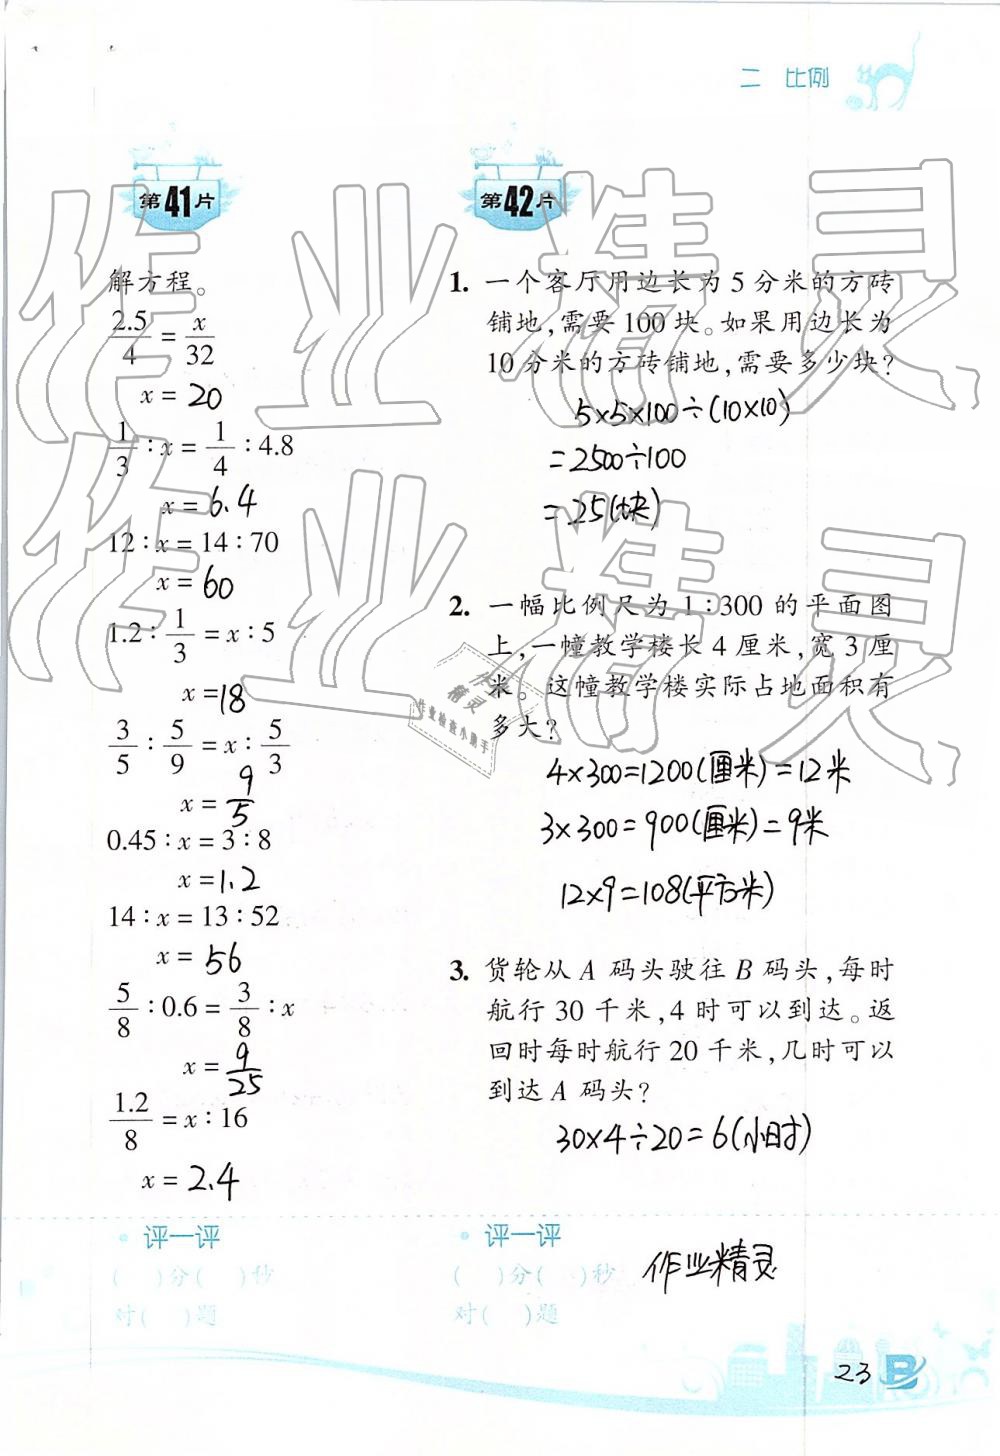 二 比例
第41片
解方程。
2.5/4 = x/32
x = 20
1/3 : x = 1/4 : 4.8
x = 6.4
12 : x = 14 : 70
x = 60
1.2 : 1/3 = x : 5
x = 18
3/5 : 5/9 = x : 5/3
x = 9/5
0.45 : x = 3 : 8
x = 1.2
14 : x = 13 : 52
x = 56
5/8 : 0.6 = 3/8 : x
x = 9/25
1.2/8 = x : 16
x = 2.4
评一评
( )分( )秒
对( )题
第42片
1. 一个客厅用边长为5分米的方砖
铺地,需要100块。如果用边长为
10分米的方砖铺地,需要多少块?
5×5×100÷(10×10)
=2500÷100
=25(块)
2. 一幅比例尺为1:300的平面图
上,一幢教学楼长4厘米,宽3厘
米。这幢教学楼实际占地面积有
多大?
4×300=1200(厘米)=12米
3×300=900(厘米)=9米
12×9=108(平方米)
3. 货轮从A码头驶往B码头,每时
航行30千米,4时可以到达。返
回时每时航行20千米,几时可以
到达A码头?
30×4÷20=6(小时)
评一评
( )分( )秒
对( )题
作业精灵
23
B
作业精灵
作业精灵
作业
精灵
作业检查小助手